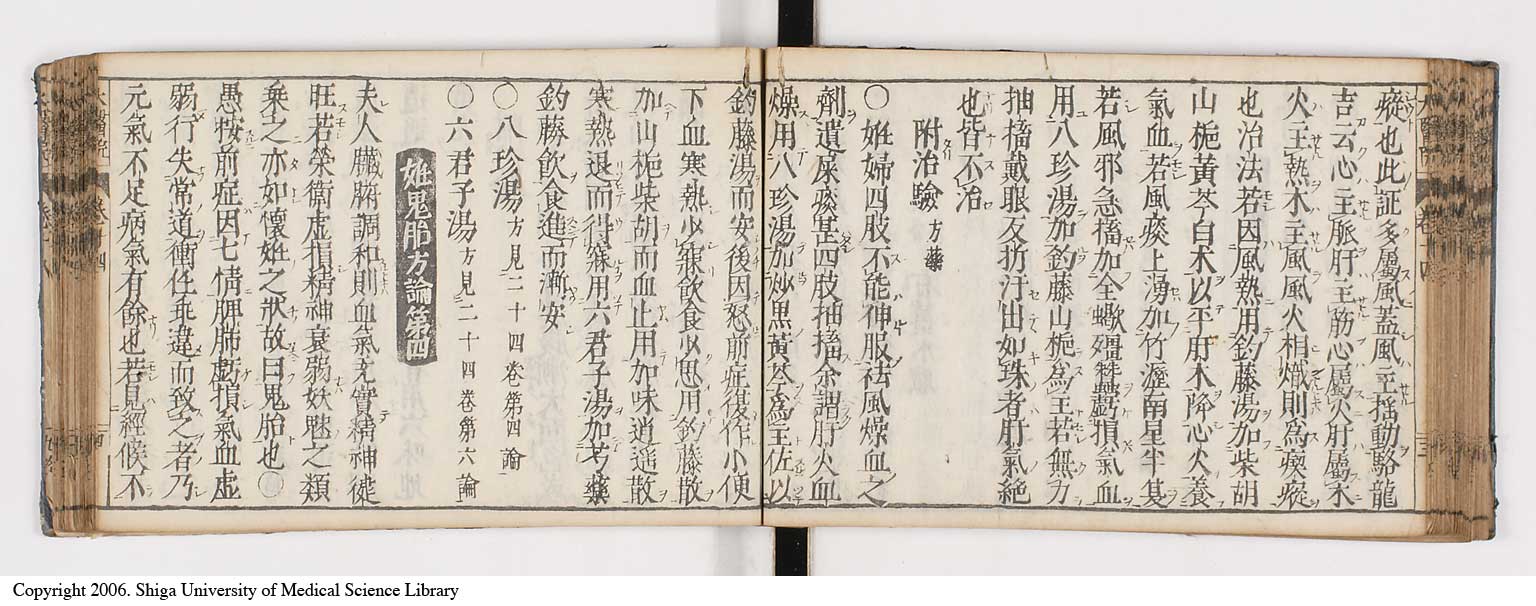 瘲也此証多屬風蓋風主揺動駱龍
吉云心主脈肝主筋心屬火肝屬木
火主熱木主風風火相熾則為瘈瘲
也治法若因風熱用鈎藤湯加柴胡
山梔黃芩白木以平肝木降心火養
氣血若風痰上湧加竹瀝南星半夏
若風邪急搐加全蠍殭蠶虧損氣血
用八珍湯加鈎藤山梔為主若無力
抽搐戴眼反折汗出如珠者肝氣絕
也皆不治
附治驗方藥
〇姙婦四肢不能伸服祛風燥血之
劑遺尿痰甚四肢抽搐余謂肝火血
燥用八珍湯加炒黑黃芩為主佐以
鈎藤湯而安後因怒前症復作小便
下血寒熱少寐飲食少思用鈎藤散
加山梔柴胡而血止用加味逍遥散
寒熱退而得寐用六君子湯加芍藥
釣藤飲食進而漸安
〇八珍湯方見二十四卷第四論
〇六君子湯方見二十四卷第六論
姙鬼胎方論第四
夫人臟腑調和則血氣充實精神健
旺若榮衛虚損精神衰弱妖魅之類
乘之亦如懷姙之狀故曰鬼胎也〇
愚按前症因七情脾肺虧損氣血虚
弱行失常道衝任乖違而致之者乃
元氣不足病氣有餘也若見經候不
Copyright 2006. Shiga University of Medical Science Library